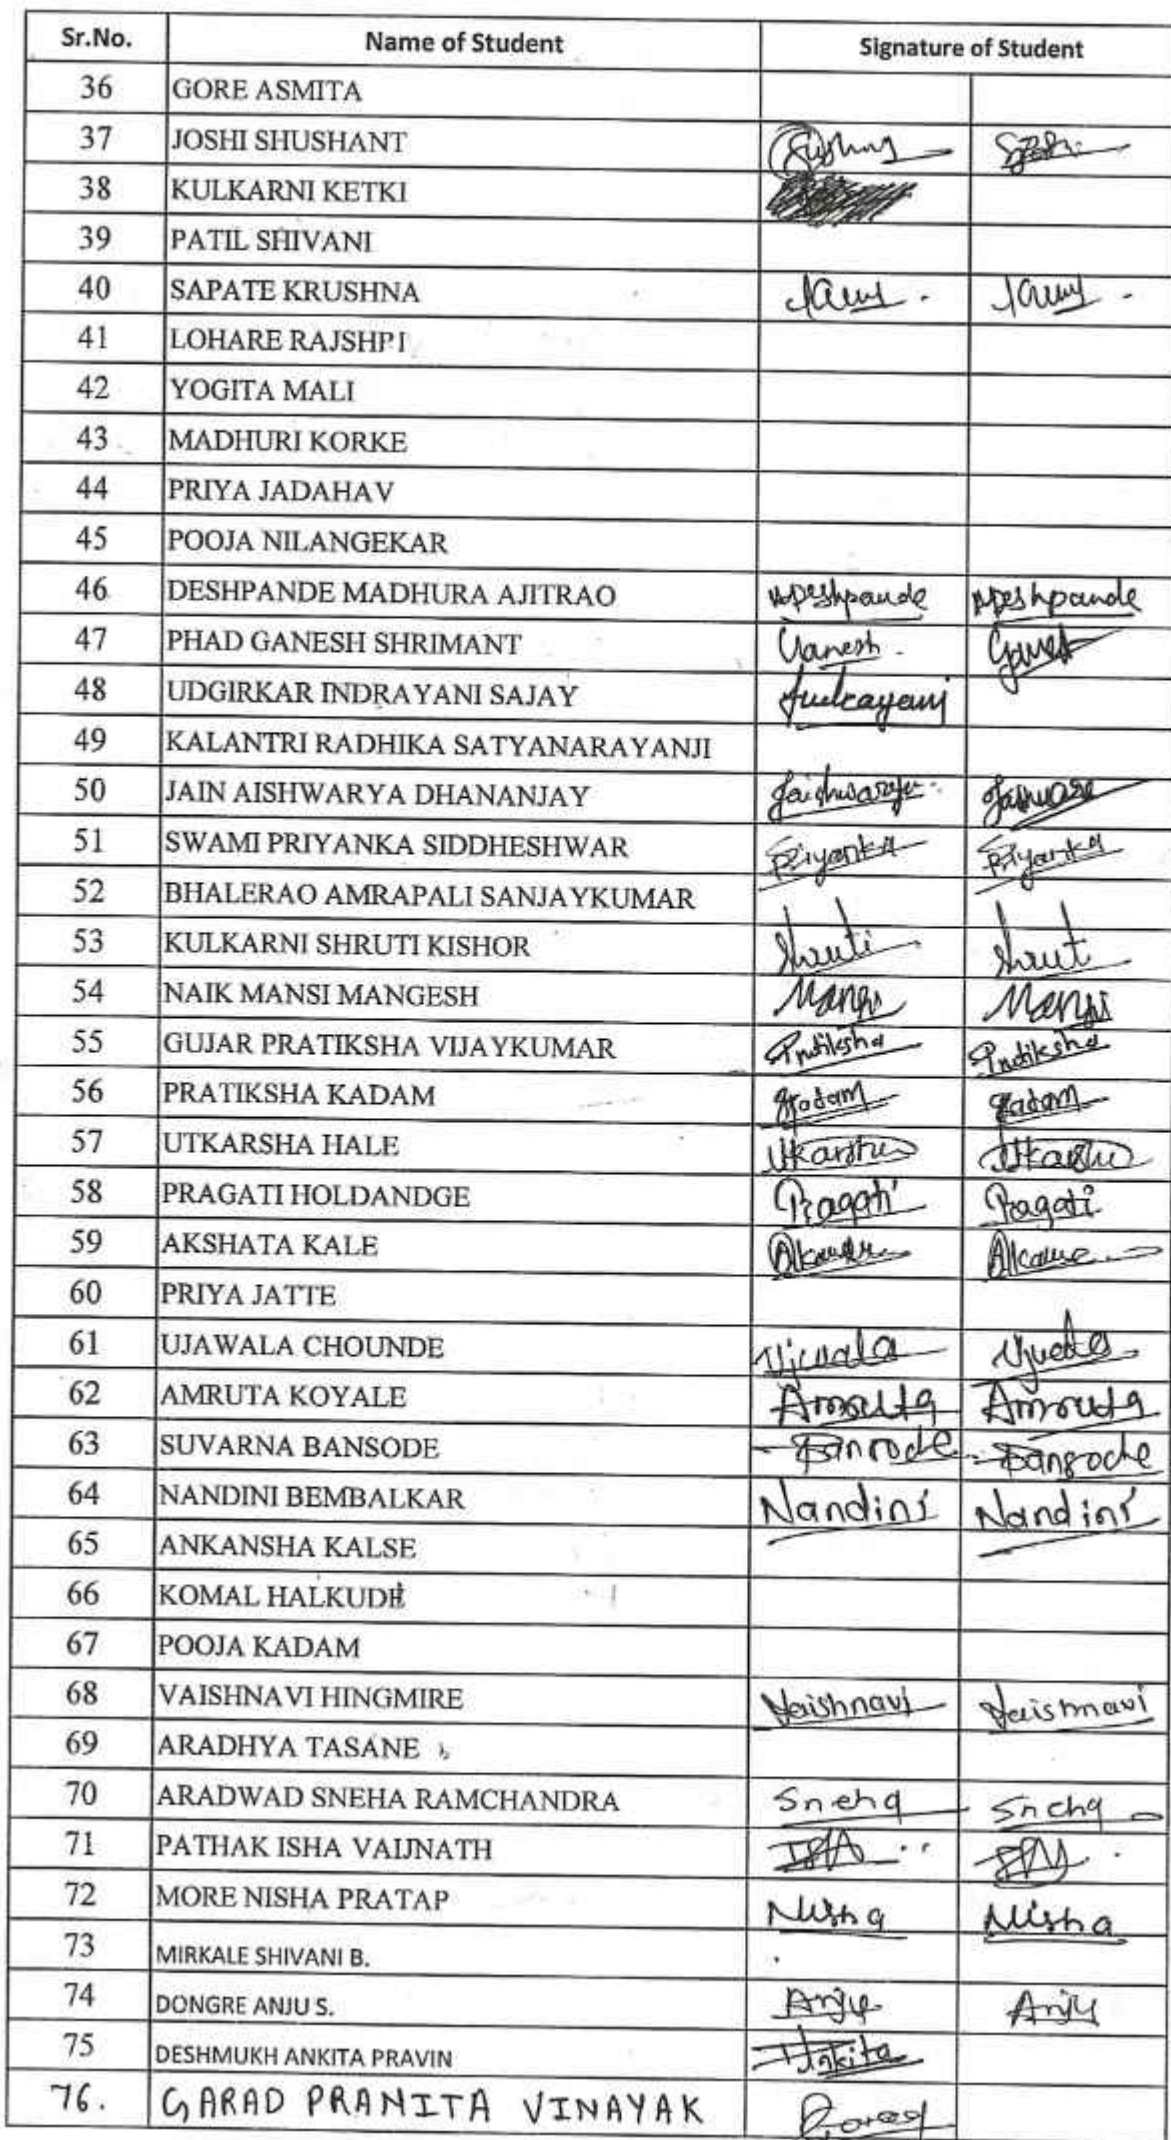 Sr.No. Name of Student Signature of Student
36 GORE ASMITA
37 JOSHI SHUSHANT
38 KULKARNI KETKI
39 PATIL SHIVANI
40 SAPATE KRUSHNA
41 LOHARE RAJSHPI
42 YOGITA MALI
43 MADHURI KORKE
44 PRIYA JADAHAV
45 POOJA NILANGEKAR
46 DESHPANDE MADHURA AJITRAO MDeshpande MDeshpande
47 PHAD GANESH SHRIMANT Ganesh
48 UDGIRKAR INDRAYANI SAJAY Indrayani
49 KALANTRI RADHIKA SATYANARAYANJI
50 JAIN AISHWARYA DHANANJAY
51 SWAMI PRIYANKA SIDDHESHWAR Priyanka Priyanka
52 BHALERAO AMRAPALI SANJAYKUMAR
53 KULKARNI SHRUTI KISHOR Shruti Shruti
54 NAIK MANSI MANGESH Mansi Mansi
55 GUJAR PRATIKSHA VIJAYKUMAR Pratiksha Pratiksha
56 PRATIKSHA KADAM
57 UTKARSHA HALE
58 PRAGATI HOLDANDGE Pragati Pragati
59 AKSHATA KALE
60 PRIYA JATTE
61 UJAWALA CHOUNDE Ujwala
62 AMRUTA KOYALE Amruta Amruta
63 SUVARNA BANSODE Bansode Bansode
64 NANDINI BEMBALKAR Nandini Nandini
65 ANKANSHA KALSE
66 KOMAL HALKUDE
67 POOJA KADAM
68 VAISHNAVI HINGMIRE Vaishnavi Vaishnavi
69 ARADHYA TASANE
70 ARADWAD SNEHA RAMCHANDRA Sneha Sneha
71 PATHAK ISHA VAIJNATH
72 MORE NISHA PRATAP Nisha Nisha
73 MIRKALE SHIVANI B.
74 DONGRE ANJU S. Anju Anju
75 DESHMUKH ANKITA PRAVIN Ankita
76. GARAD PRANITA VINAYAK